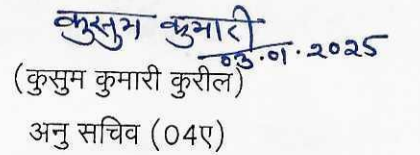 कुसुम कुमारी
03.01.2025
(कुसुम कुमारी कुरील)
अनु सचिव (04ए)